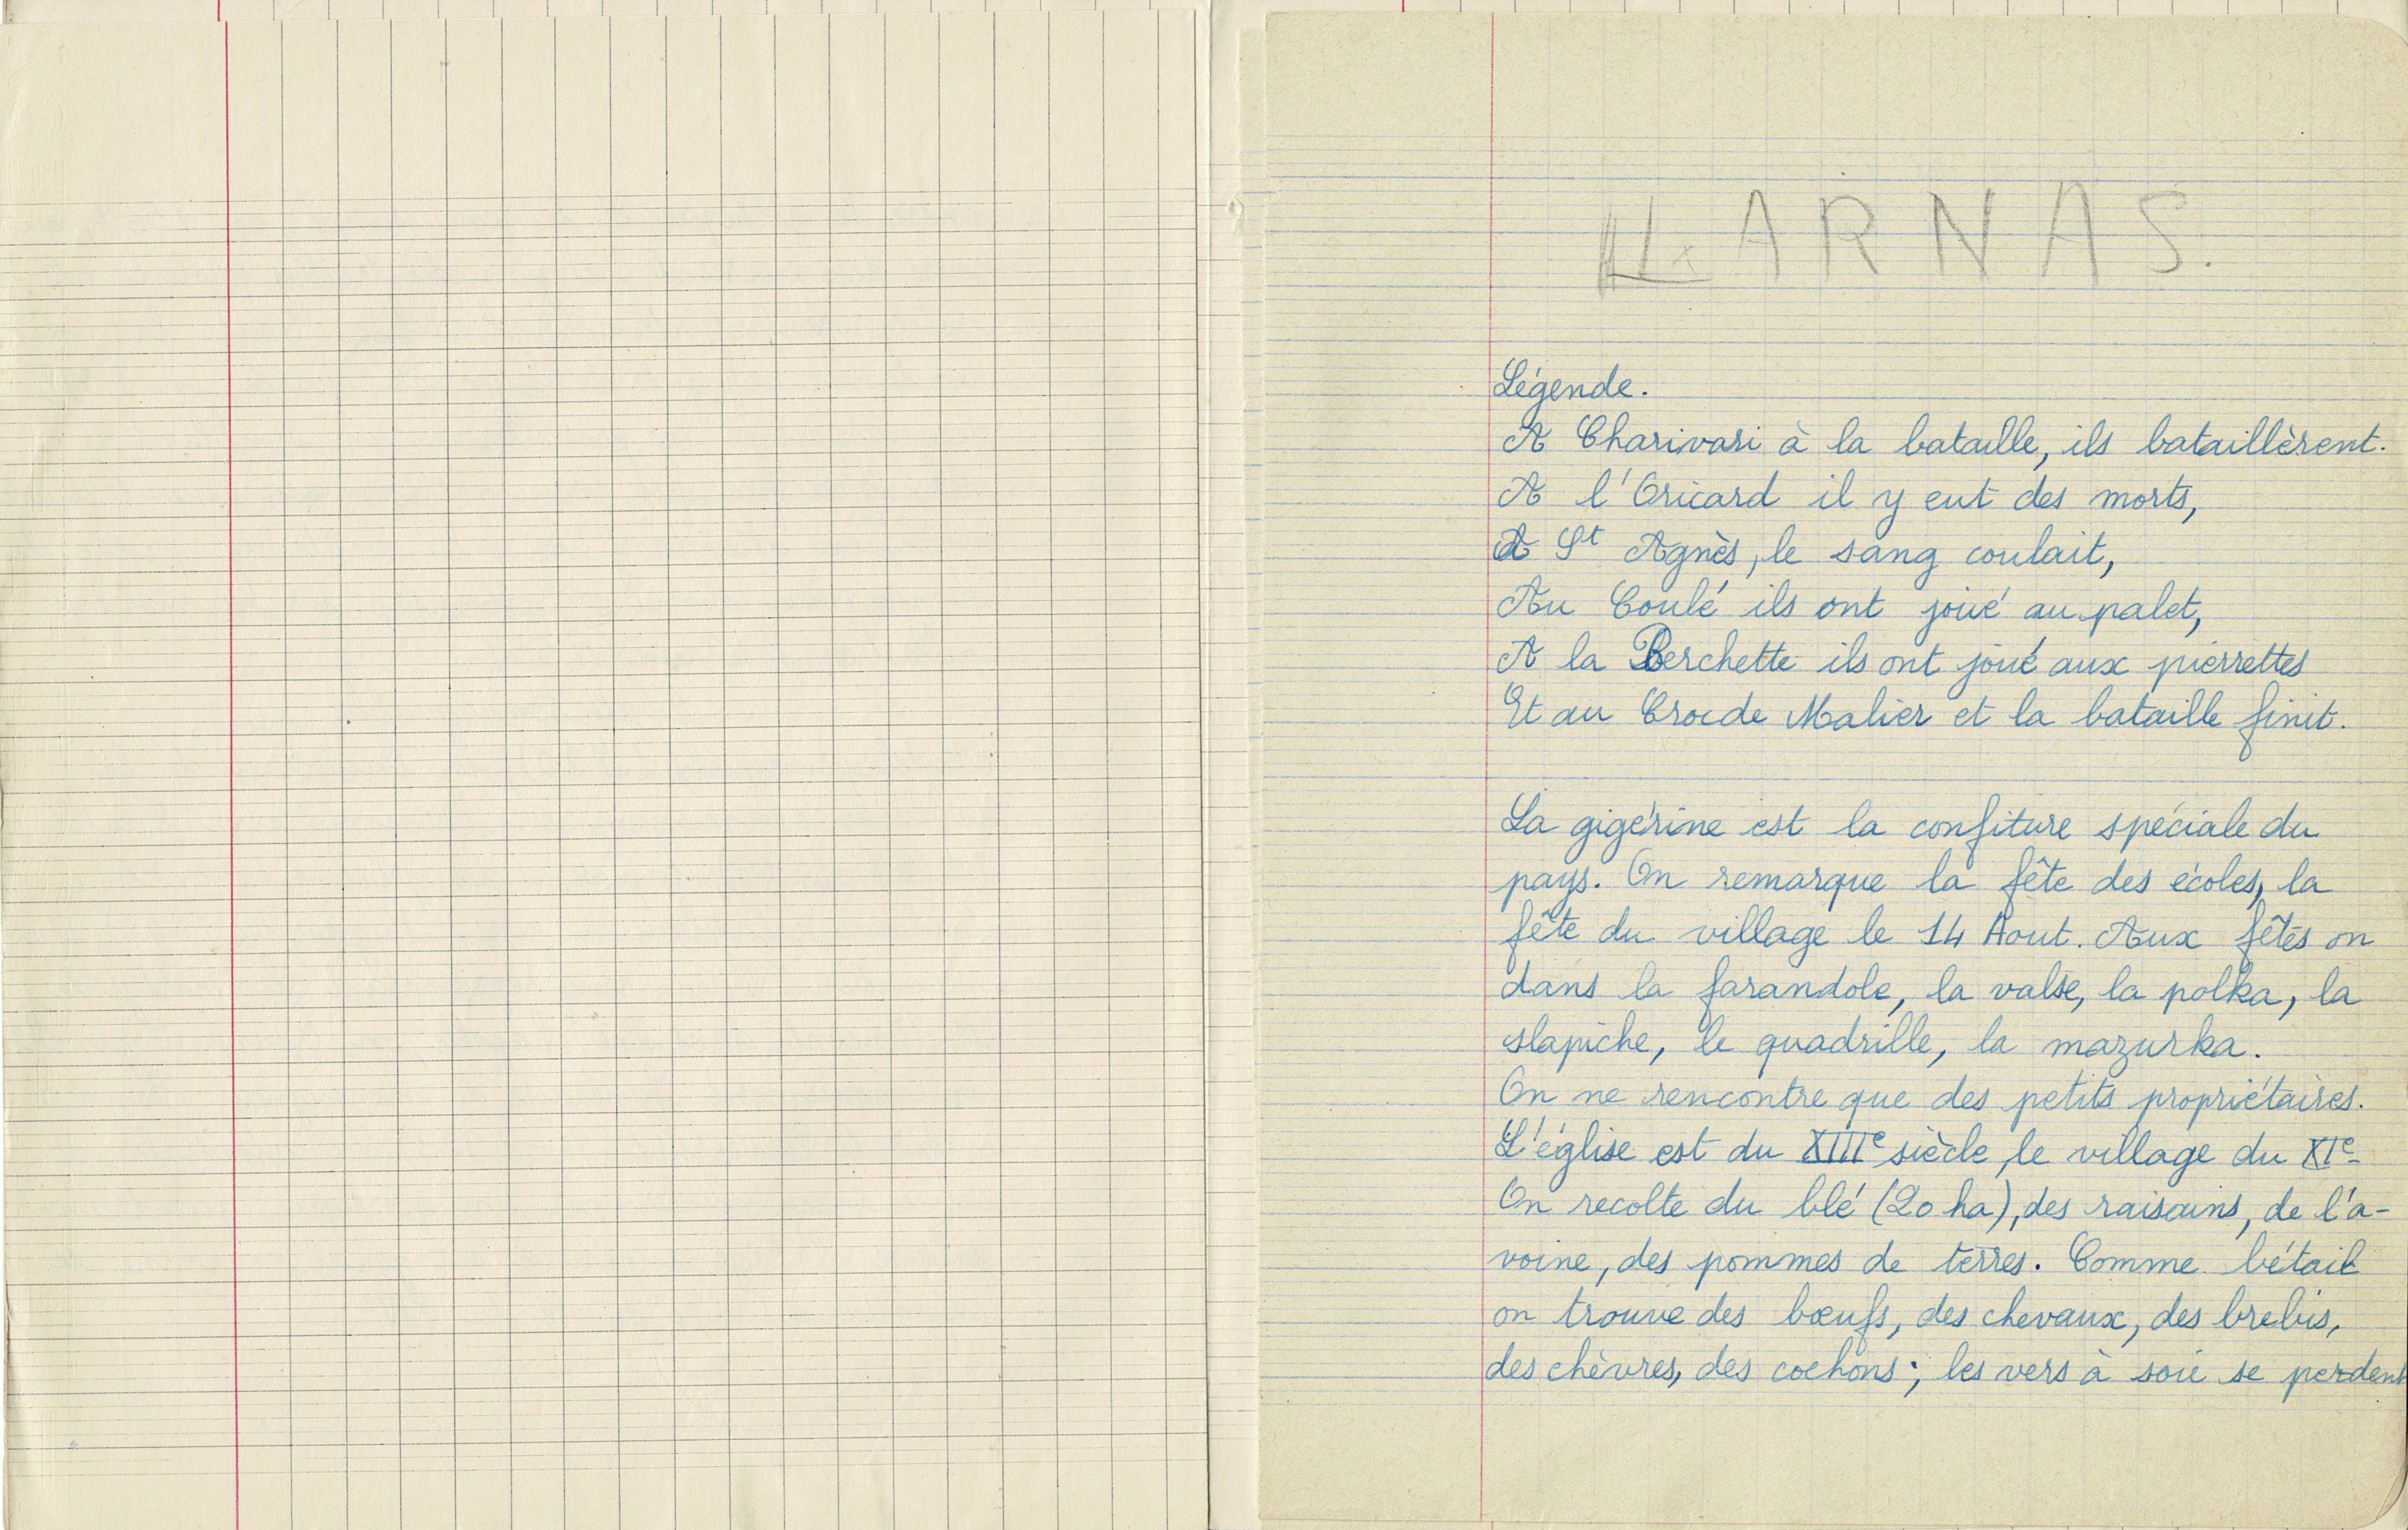 LARNAS.
Légende.
A Charivari à la bataille, ils bataillèrent.
A l'Oricard il y eut des morts,
A St Agnès, le sang coulait,
Au Coulé ils ont joué au palet,
A la Berchette ils ont joué aux pierrettes
Et au Crocde Malier et la bataille finit.
La gigérine est la confiture spéciale du
pays. On remarque la fête des écoles, la
fête du village le 14 Aout. Aux fêtes on
dans la farandole, la valse, la polka, la
slapiche, le quadrille, la mazurka.
On ne rencontre que des petits propriétaires.
L'église est du XIIIe siècle, le village du XIe.
On recolte du blé (20 ha), des raisains, de l'a-
voine, des pommes de terres. Comme bétail
on trouve des bœufs, des chevaux, des brebis,
des chèvres, des cochons; les vers à soie se perdent